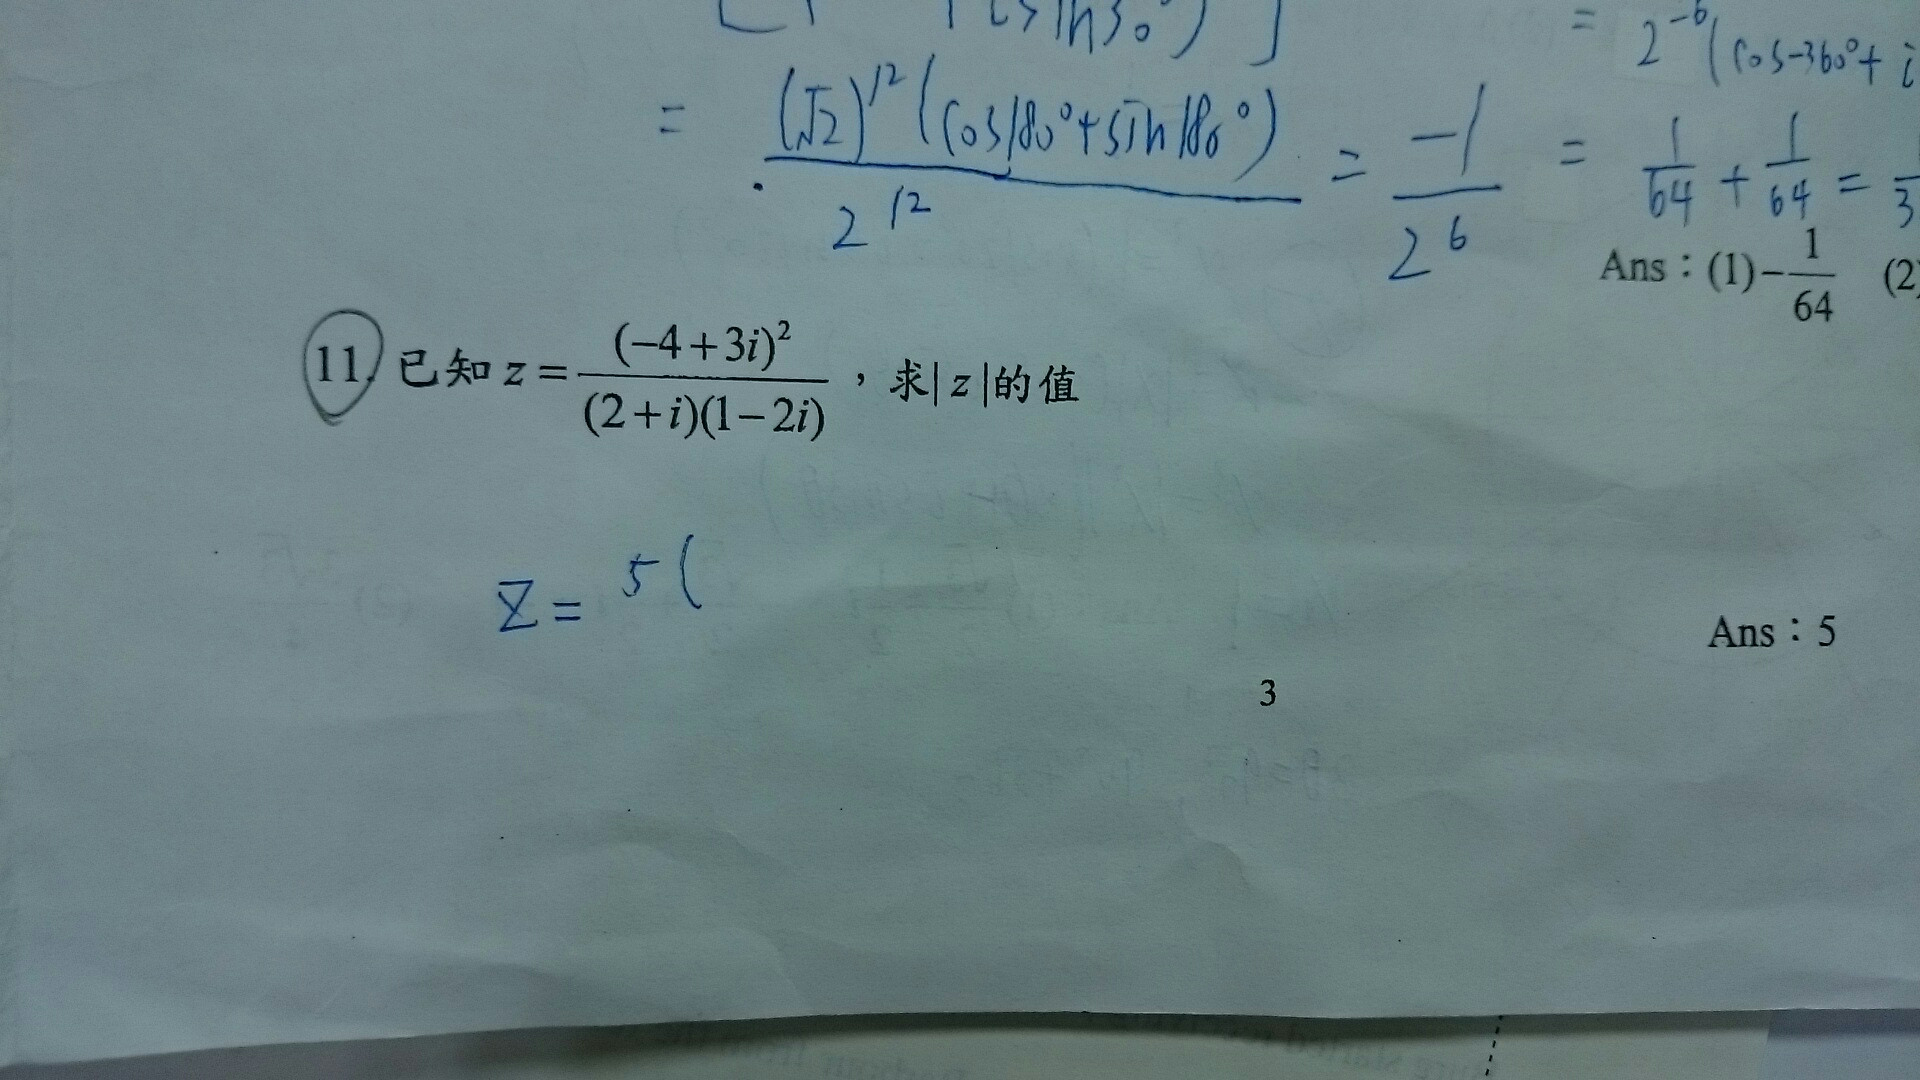 i sin30°) ]
= 2^-6 (cos-360°+ i
= (√2)^12 (cos180°+sin180°) / 2^12 = -1 / 2^6
= 1/64 + 1/64 =
Ans：(1)-1/64 (2)
11. 已知 z = (-4+3i)² / (2+i)(1-2i) ，求| z |的值
Z = 5 (
Ans：5
3